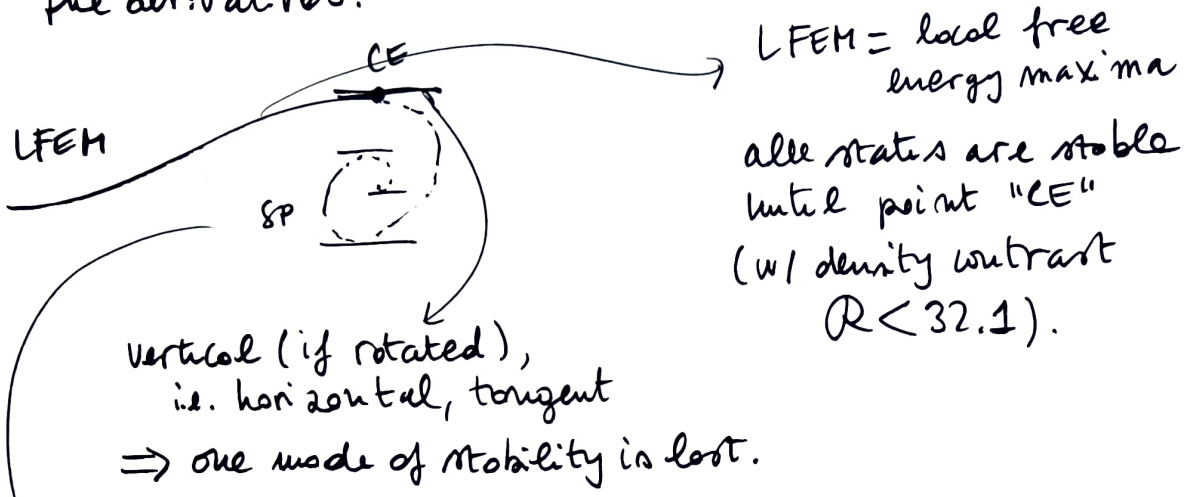 the derivatives.
CE
LFEM = local free
energy maxima
LFEM
all states are stable
until point "CE"
SP
(w/ density contrast
R < 32.1).
vertical (if rotated),
i.e. horizontal, tangent
⇒ one mode of stability is lost.